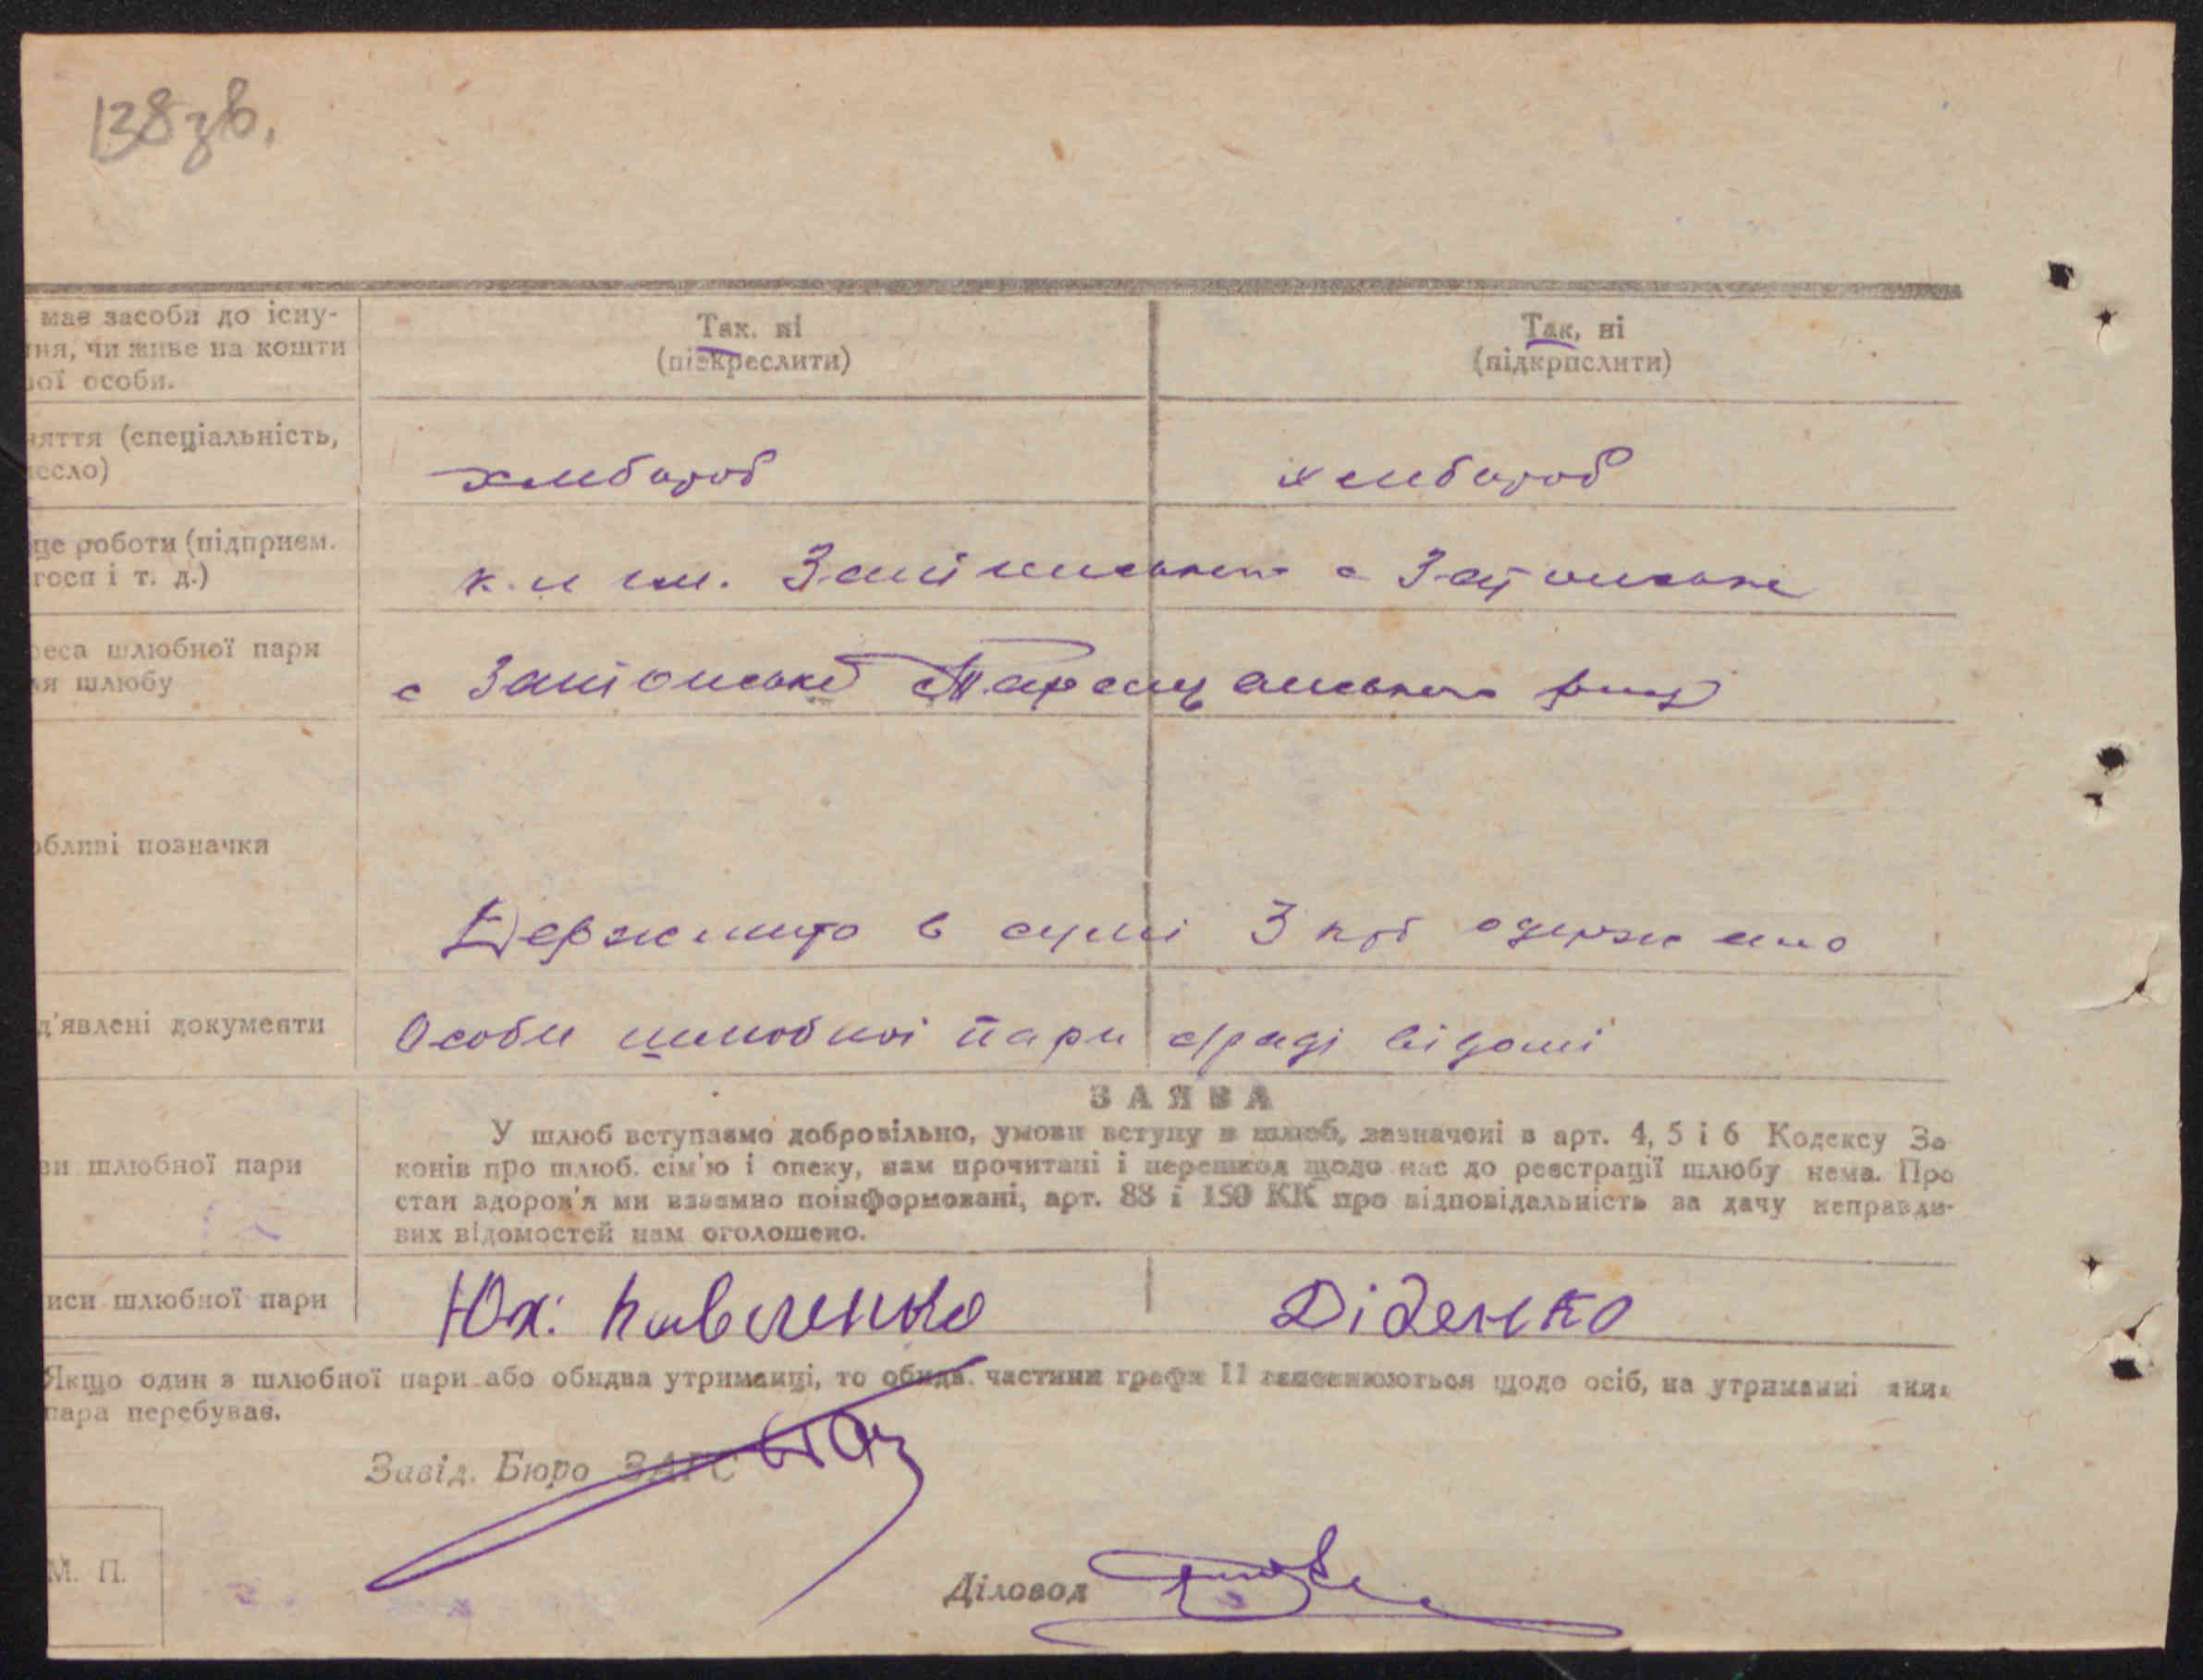 138 зв.
має засоби до існу-
ня, чи живе на кошти
ої особи.
Так. ні
(підкреслити)
Так, ні
(підкрпслити)
няття (спеціальність,
есло)
хлібороб
хлібороб
це роботи (підприєм.
госп і т. д.)
с
реса шлюбної пари
ля шлюбу
с Таращанського рай
обливі позначки
Держмито в сумі 3 крб одержано
д'явлені документи
Особи шлюбної пари с/раді відомі
ЗАЯВА
У шлюб вступаємо добровільно, умови вступу в шлюб, зазначені в арт. 4, 5 і 6 Кодексу За
ви шлюбної пари
конів про шлюб. сім'ю і опеку, нам прочитані і перешкод щодо нас до реєстрації шлюбу нема. Про
стан здоров'я ми взаємно поінформовані, арт. 88 і 150 КК про відповідальність за дачу неправди-
вих відомостей нам оголошено.
иси шлюбної пари
Юх: Павленко
Діденко
Якщо один з шлюбної пари або обидва утриманці, то обидв. частини графи 11 заповнюються щодо осіб, на утриманні яких
пара перебуває.
Завід. Бюро ЗАГС
М. П.
Діловод